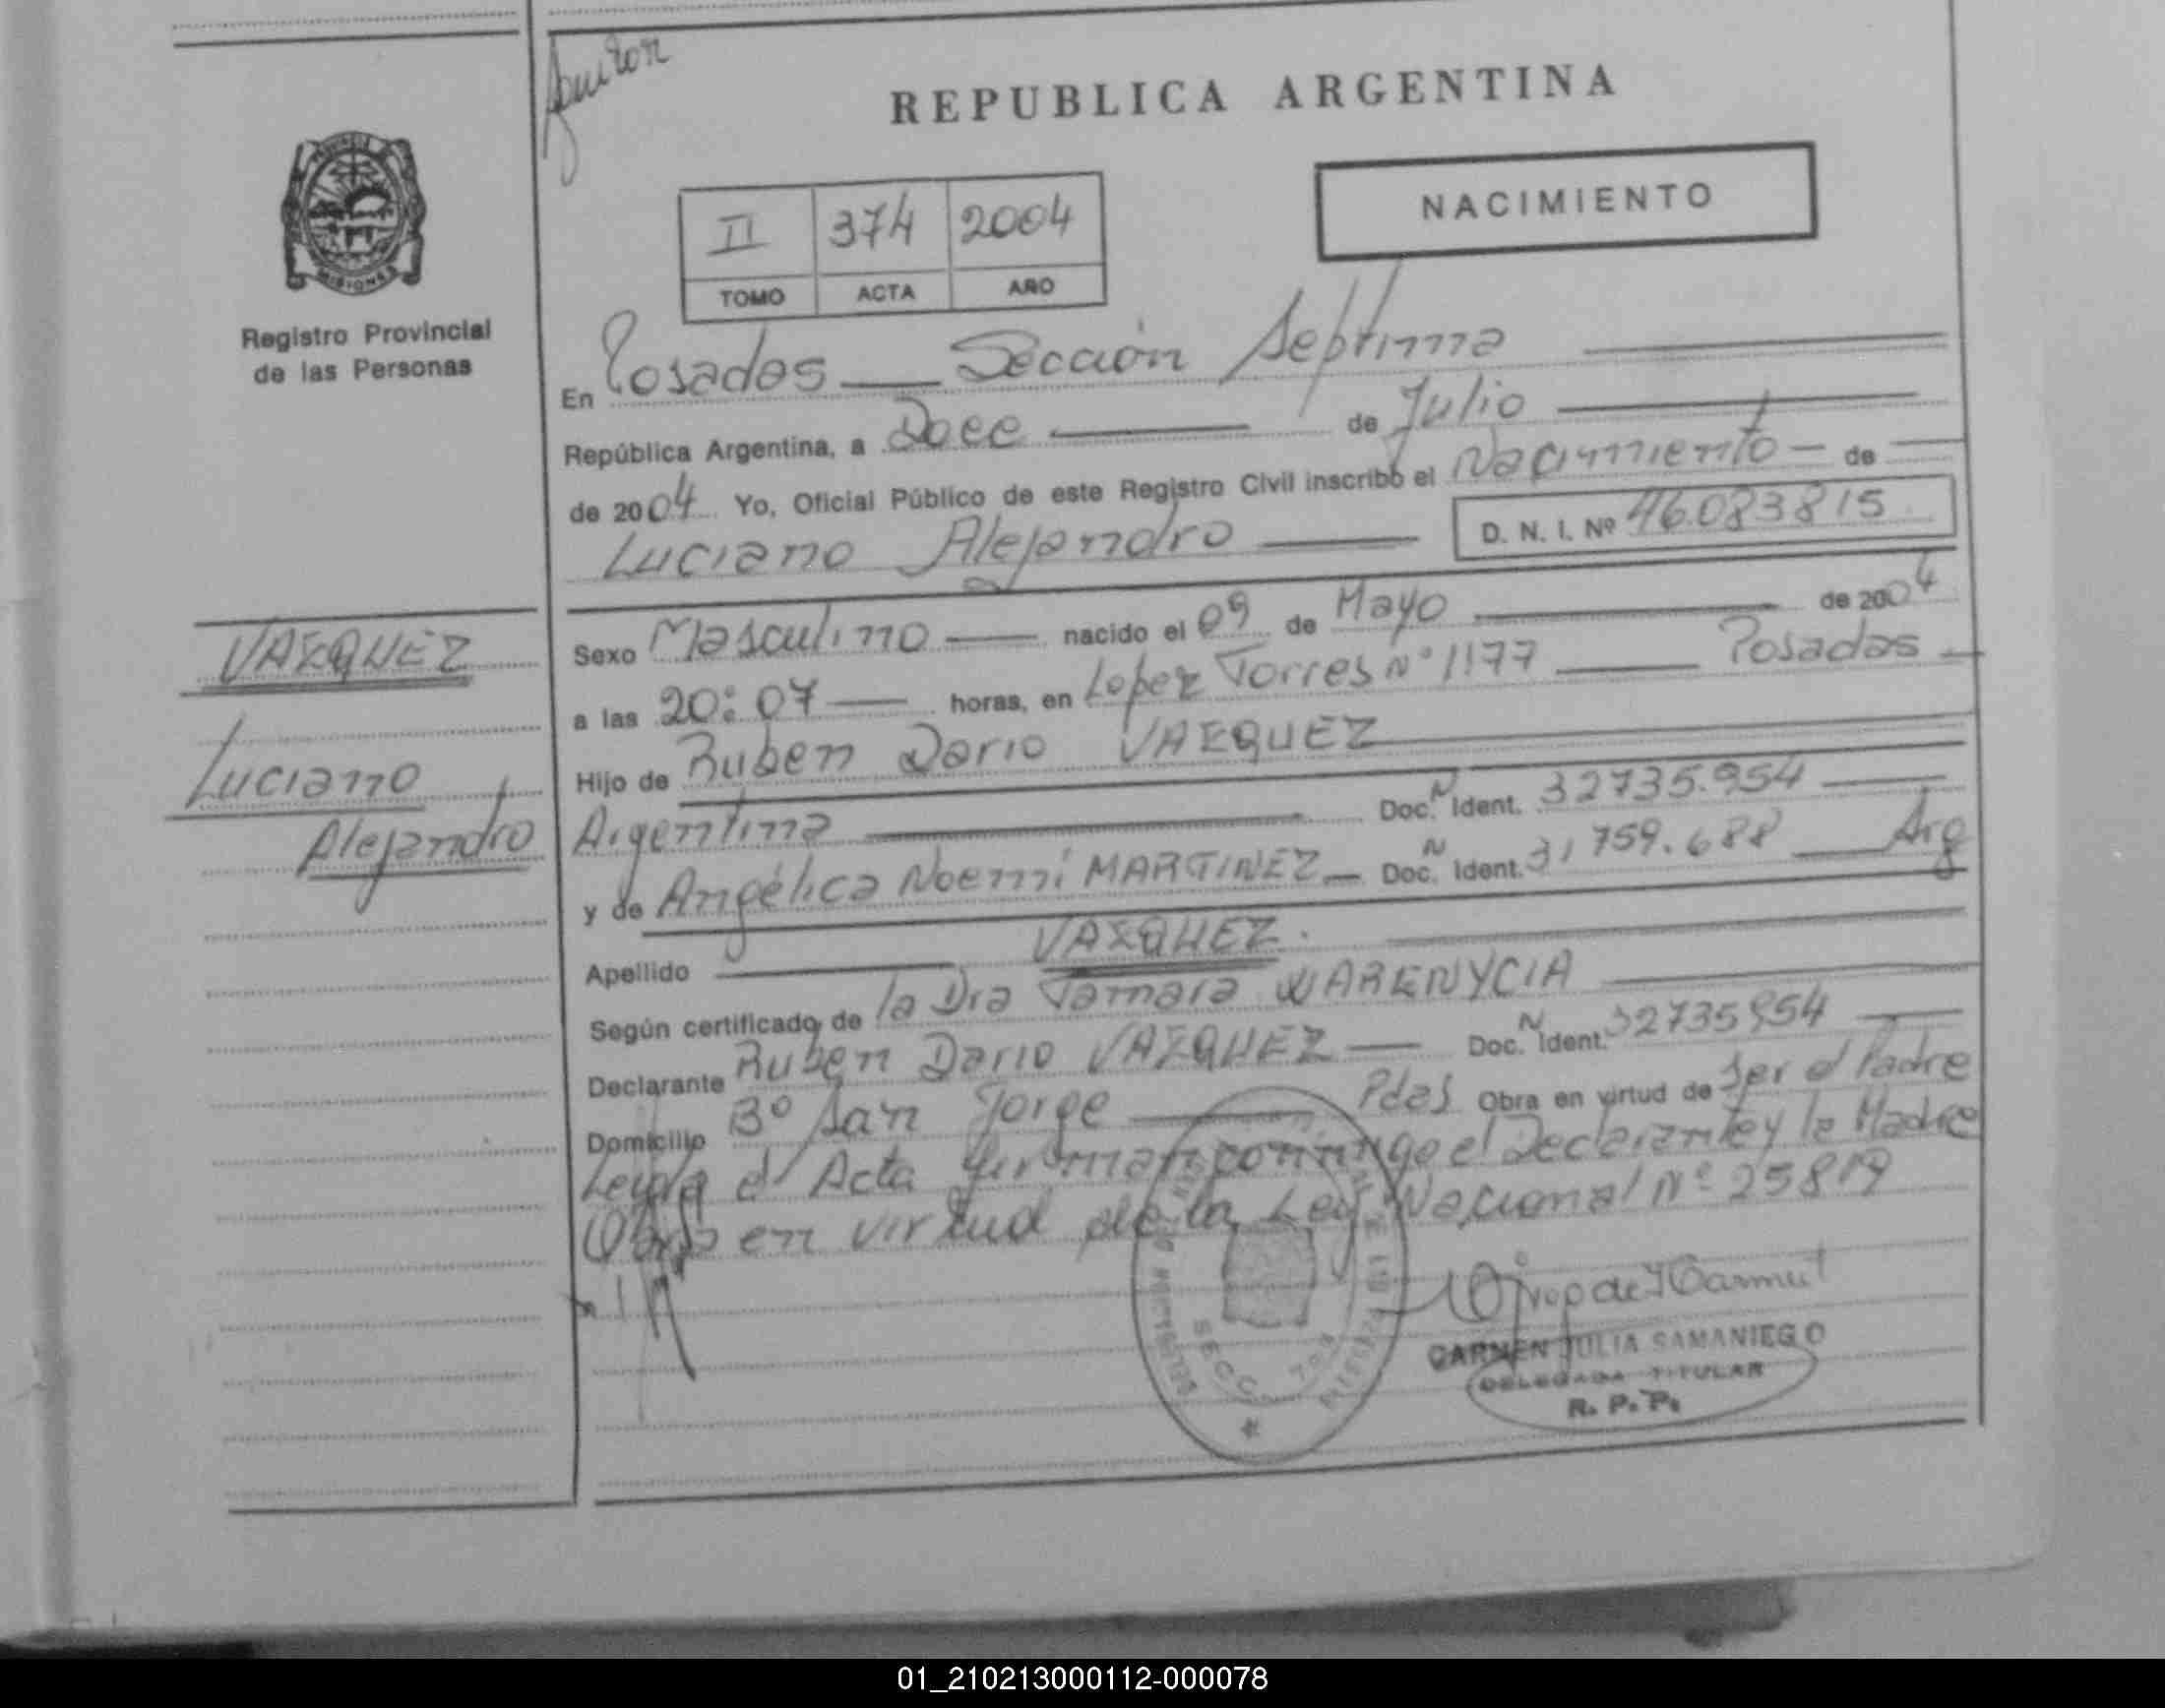 REPUBLICA ARGENTINA
PROVINCIA DE
MISIONES
Registro Provincial
de las Personas
NACIMIENTO
II 374 2004
TOMO ACTA AÑO
En Posadas — Sección Septima
República Argentina, a Doce — de Julio
de 2004 Yo, Oficial Público de este Registro Civil inscribo el Nacimiento — de
Luciano Alejandro — D. N. I. Nº 46.083815
VAZQUEZ
Luciano
Alejandro
Sexo Masculino — nacido el 09 de Mayo — de 2004
a las 20:07 — horas, en Lopez Torres Nº 1177 — Posadas —
Hijo de Ruben Dario VAZQUEZ
Argentina — Doc. N Ident. 32735.954 —
y de Angélica Noemí MARTINEZ — Doc. N Ident. 31759.688 — Arg
Apellido — VAZQUEZ.
Según certificado de la Dra Tamara WARENYCIA
Declarante Ruben Dario VAZQUEZ — Doc. N Ident. 32735954 —
Domicilio Bº San Jorge — Pdas Obra en virtud de Ser el Padre
Leida el Acta firman conmigo el Declarante y la Madre
Obra en virtud de la Ley Nacional Nº 25819
SECC. 7ma
CARMEN JULIA SAMANIEGO
DELEGADA TITULAR
R. P. P.
01_210213000112-000078